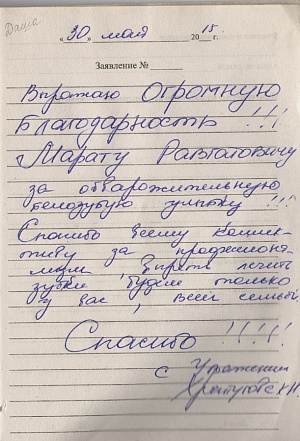 Даша
«30» мая 2015 г.
Заявление №
Выражаю Огромную
Благодарность !!!
Марату Равгатовичу
за обварожительную
белозубую улыбку !!!
Спасибо всему коллек-
тиву за професиона-
лизм, лечить
зубки будем только
у вас, всей семьёй,
Спасибо !!!!
с Уважением